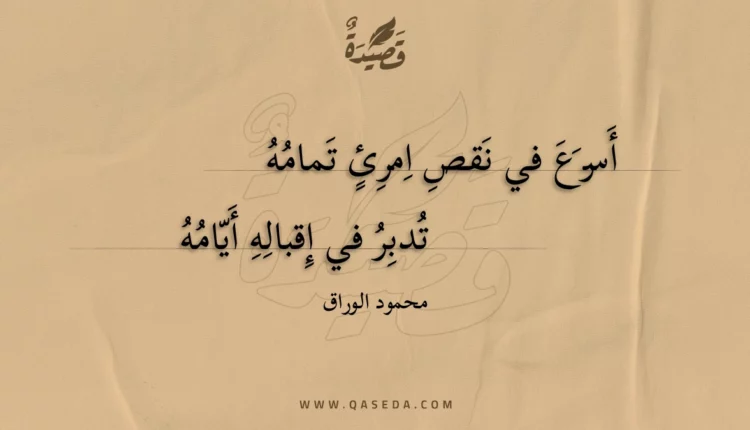 قَصِيْدَةٌ
أَسرَعَ في نَقصِ اِمرِئٍ تَمامُهُ
تُدبِرُ في إِقبالِهِ أَيّامُهُ
محمود الوراق
WWW.QASEDA.COM